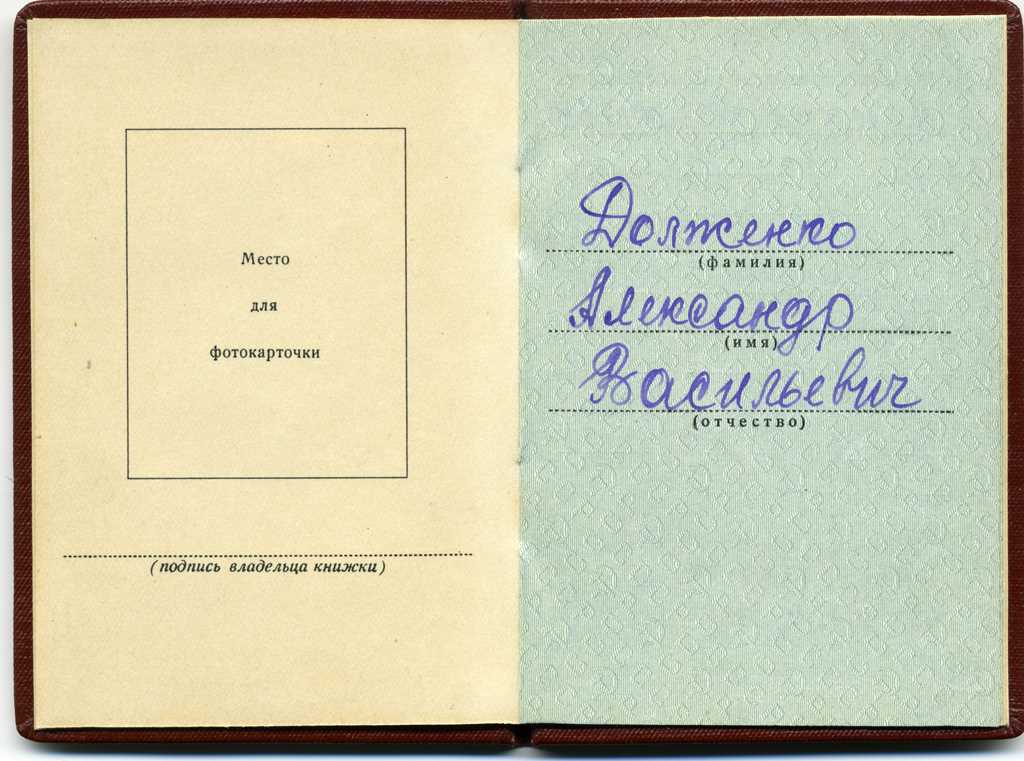 Место
для
фотокарточки
(подпись владельца книжки)
Долженко
(фамилия)
Александр
(имя)
Васильевич
(отчество)